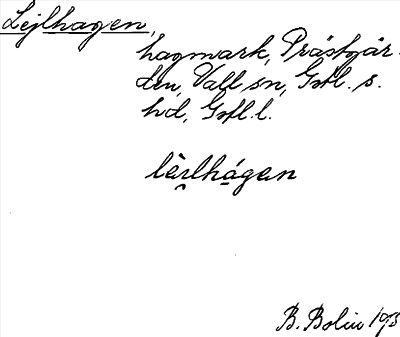 Lejlhagen,
hagmark, Prästgår-
den, Vall sn, Gotl. s.
hd, Gotl. l.
lèrlhágen
B. Bolin 193